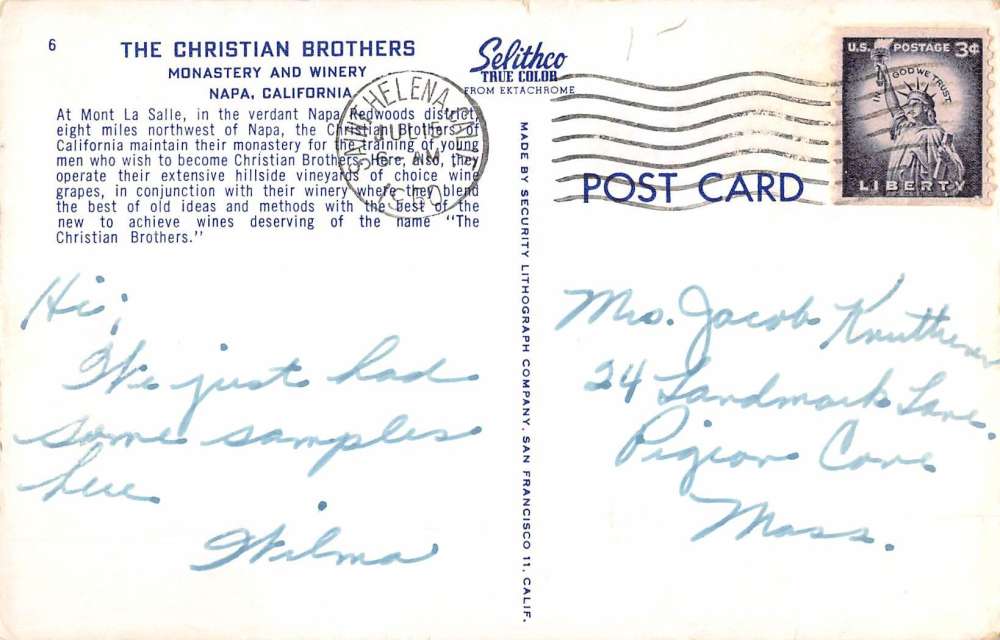 6
THE CHRISTIAN BROTHERS
MONASTERY AND WINERY
NAPA, CALIFORNIA
At Mont La Salle, in the verdant Napa Redwoods district,
eight miles northwest of Napa, the Christian Brothers of
California maintain their monastery for the training of young
men who wish to become Christian Brothers. Here, also, they
operate their extensive hillside vineyards of choice wine
grapes, in conjunction with their winery where they blend
the best of old ideas and methods with the best of the
new to achieve wines deserving of the name "The
Christian Brothers."
Selithco
TRUE COLOR
FROM EKTACHROME
SAINT HELENA
JUL
AM
1960
U.S. POSTAGE 3¢
IN GOD WE TRUST
LIBERTY
POST CARD
MADE BY SECURITY LITHOGRAPH COMPANY, SAN FRANCISCO 11, CALIF.
Hi;
We just had
some samples
here
Wilma
Mrs. Jacob
24 Landmark Lane.
Pigeon Cove
Mass.